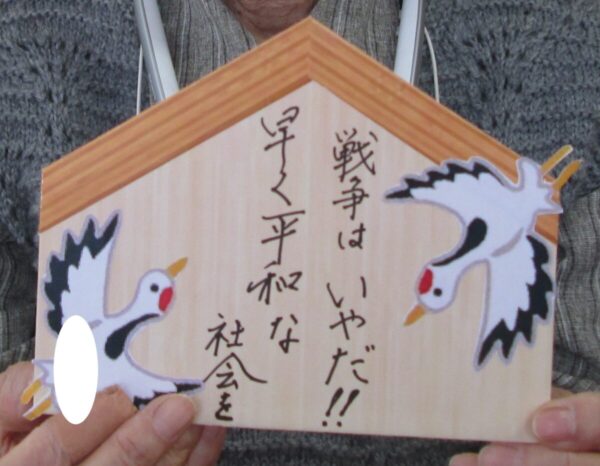 戦争は いやだ!!
早く平和な
社会を